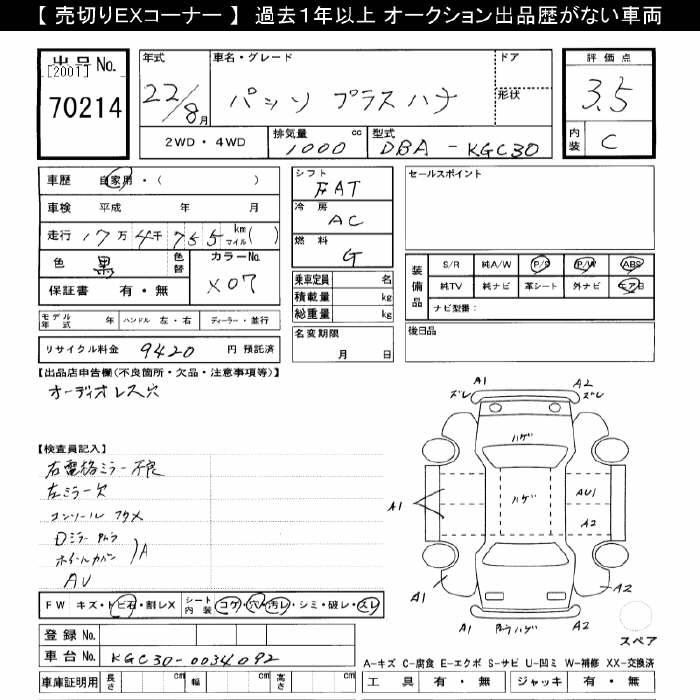 【 売切りEXコーナー 】 過去1年以上 オークション出品歴がない車両
出品No.
[2001]
70214
年式
22/8月
車名・グレード
パッソ プラスハナ
ドア
形状
評価点
3.5
内装
C
2WD・4WD
排気量
1000
cc
型式
DBA - KGC30
車歴 自家用・( )
車検 平成 年 月
走行 17万 4千 755 km マイル( )
色 黒
色替
カラーNo.
X07
保証書 有・無
モデル年式 年
ハンドル 左・右
ディーラー・並行
リサイクル料金 9420 円 預託済
シフト
FAT
冷房
AC
燃料
G
乗車定員 名
積載量 kg
総重量 kg
名変期限
月 日
セールスポイント
装備品
S/R 純A/W P/S P/W ABS
純TV 純ナビ 革シート 外ナビ エアB
ナビ型番:
後日品
【出品店申告欄(不良箇所・欠品・注意事項等)】
オーディオレス穴
【検査員記入】
右電格ミラー不良
左ミラー欠
コンソール
Dミラー
ホイールカバー
A
AU
FW キズ・トビ石・割レX
シート内装 コゲ・穴・汚レ・シミ・破レ・スレ
登録No.
車台No. KGC30-0034092
車庫証明用 長さ cm 幅 cm 高さ cm
A1
ズレ
A2
ズレ
ハゲ
ハゲ
A1
AU1
A2
A1
A2
A2
スペア
A-キズ C-腐食 E-エクボ S-サビ U-凹ミ W-補修 XX-交換済
工具 有・無 ジャッキ 有・無